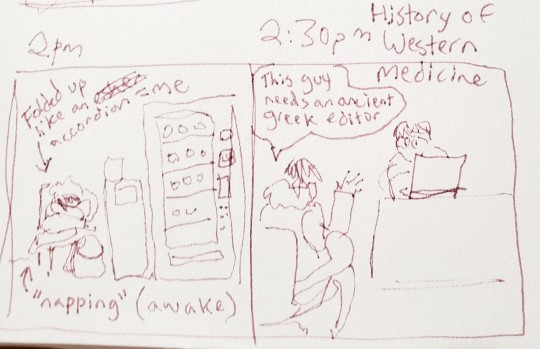 2pm
Folded up
like an = me
accordion
"napping" (awake)
2:30pm History of
Western
Medicine
This guy
needs an ancient
greek editor